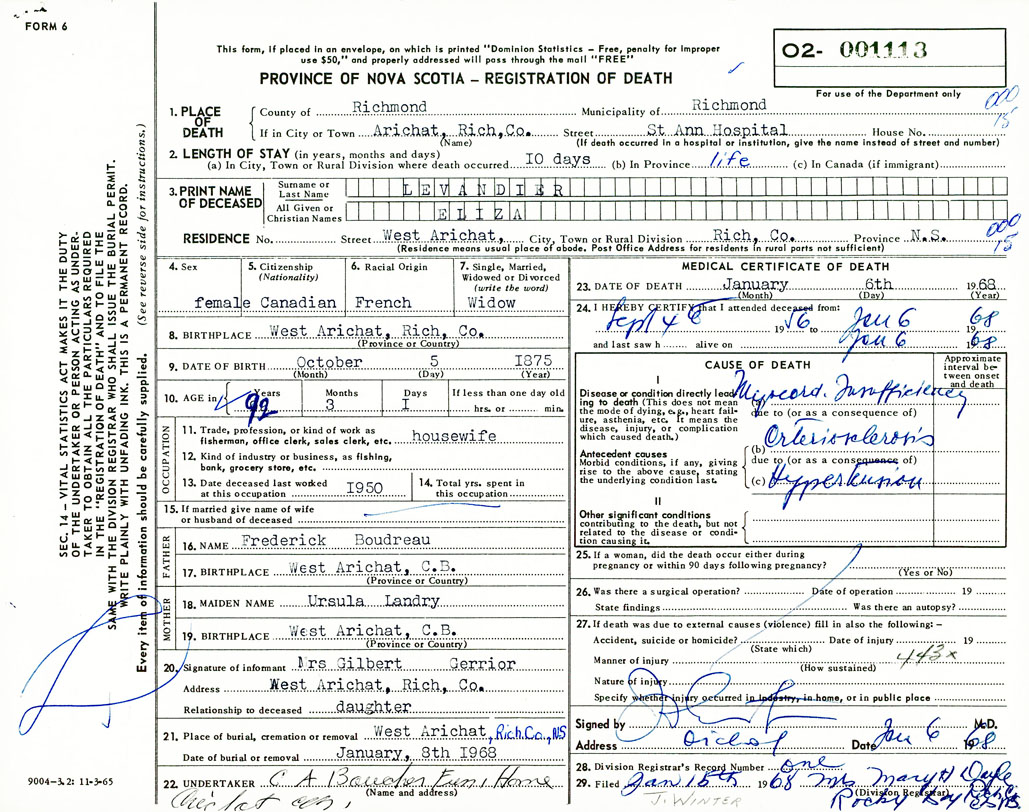 FORM 6
This form, if placed in an envelope, on which is printed "Dominion Statistics – Free, penalty for improper
use $50," and properly addressed will pass through the mail "FREE"
PROVINCE OF NOVA SCOTIA – REGISTRATION OF DEATH
02- 001113
For use of the Department only
000
15
1. PLACE OF DEATH
County of Richmond Municipality of Richmond
If in City or Town Arichat, Rich,Co. Street St Ann Hospital House No.
(Name) (If death occurred in a hospital or institution, give the name instead of street and number)
2. LENGTH OF STAY (in years, months and days)
(a) In City, Town or Rural Division where death occurred 10 days (b) In Province life (c) In Canada (if immigrant)
3. PRINT NAME OF DECEASED
Surname or Last Name LEVANDIER
All Given or Christian Names ELIZA
000
15
RESIDENCE No. Street West Arichat, City, Town or Rural Division Rich, Co. Province N.S.
(Residence means usual place of abode. Post Office Address for residents in rural parts not sufficient)
4. Sex
female
5. Citizenship
(Nationality)
Canadian
6. Racial Origin
French
7. Single, Married,
Widowed or Divorced
(write the word)
Widow
8. BIRTHPLACE West Arichat, Rich, Co.
(Province or Country)
9. DATE OF BIRTH October 5 1875
(Month) (Day) (Year)
10. AGE in Years Months Days If less than one day old
92 3 1 hrs. or min.
OCCUPATION
11. Trade, profession, or kind of work as
fisherman, office clerk, sales clerk, etc. housewife
12. Kind of industry or business, as fishing,
bank, grocery store, etc.
13. Date deceased last worked
at this occupation 1950
14. Total yrs. spent in
this occupation
15. If married give name of wife
or husband of deceased
FATHER
16. NAME Frederick Boudreau
17. BIRTHPLACE West Arichat, C.B.
(Province or Country)
MOTHER
18. MAIDEN NAME Ursula Landry
19. BIRTHPLACE West Arichat, C.B.
(Province or Country)
20. Signature of informant Mrs Gilbert Gerrior
Address West Arichat, Rich, Co.
Relationship to deceased daughter
21. Place of burial, cremation or removal West Arichat, Rich.Co., NS
Date of burial or removal January, 8th 1968
22. UNDERTAKER C A Boucher Fun, Home
(Name and address)
MEDICAL CERTIFICATE OF DEATH
23. DATE OF DEATH January 6th 1968
(Month) (Day) (Year)
24. I HEREBY CERTIFY that I attended deceased from:
Sept 4 1956 to Jan 6 1968
and last saw h alive on Jan 6 1968
CAUSE OF DEATH
Approximate
interval be-
tween onset
and death
I
Disease or condition directly lead-
ing to death (This does not mean
the mode of dying, e.g., heart fail-
ure, asthenia, etc. It means the
disease, injury, or complication
which caused death.)
(a) Myocard. Insufficiency
due to (or as a consequence of)
Antecedent causes
Morbid conditions, if any, giving
rise to the above cause, stating
the underlying condition last.
(b) Orteriosclerosis
due to (or as a consequence of)
(c) Hypertension
II
Other significant conditions
contributing to the death, but not
related to the disease or condi-
tion causing it.
25. If a woman, did the death occur either during
pregnancy or within 90 days following pregnancy?
(Yes or No)
26. Was there a surgical operation? Date of operation 19
State findings Was there an autopsy?
27. If death was due to external causes (violence) fill in also the following: –
Accident, suicide or homicide? Date of injury 19
(State which)
Manner of injury 443x
(How sustained)
Nature of injury
Specify whether injury occurred in industry, in home, or in public place
Signed by M.D.
Address Date Jan 6 1968
28. Division Registrar's Record Number one
29. Filed Jan 15th 1968 Mrs Mary H Doyle
(Division Registrar)
J. WINTER
SEC. 14 – VITAL STATISTICS ACT MAKES IT THE DUTY
OF THE UNDERTAKER OR PERSON ACTING AS UNDER-
TAKER TO OBTAIN ALL THE PARTICULARS REQUIRED
IN THE "REGISTRATION OF DEATH" AND TO FILE THE
SAME WITH THE DIVISION REGISTRAR WHO SHALL ISSUE THE BURIAL PERMIT.
WRITE PLAINLY WITH UNFADING INK. THIS IS A PERMANENT RECORD.
Every item of information should be carefully supplied. (See reverse side for instructions.)
9004-3.2: 11-3-65